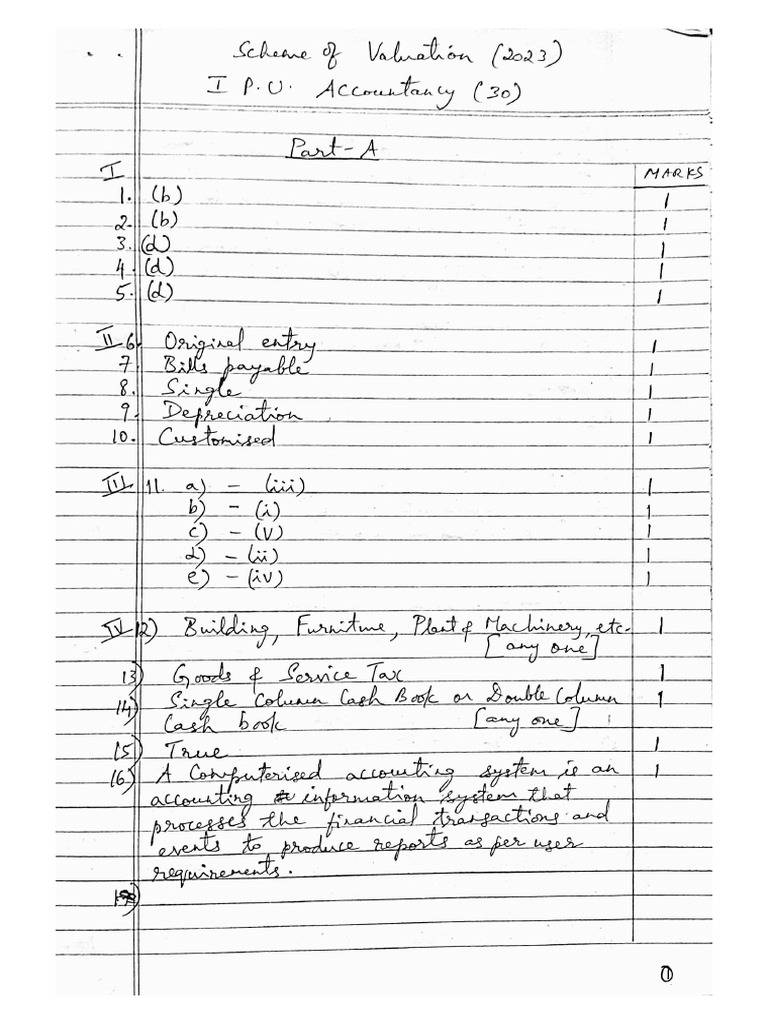 Scheme of Valuation (2023)
I P.U. Accountancy (30)
Part-A
I MARKS
1. (b) 1
2. (b) 1
3. (d) 1
4. (d) 1
5. (d) 1
II 6. Original entry 1
7. Bills payable 1
8. Single 1
9. Depreciation 1
10. Customised 1
III 11. a) - (iii) 1
b) - (i) 1
c) - (V) 1
d) - (ii) 1
e) - (iv) 1
IV 12) Building, Furniture, Plant & Machinery, etc. 1
[any one]
13) Goods & Service Tax 1
14) Single Column Cash Book or Double Column 1
Cash book [any one]
15) True 1
16) A Computerised accounting system is an 1
accounting information system that
processes the financial transactions and
events to produce reports as per user
requirements.
1